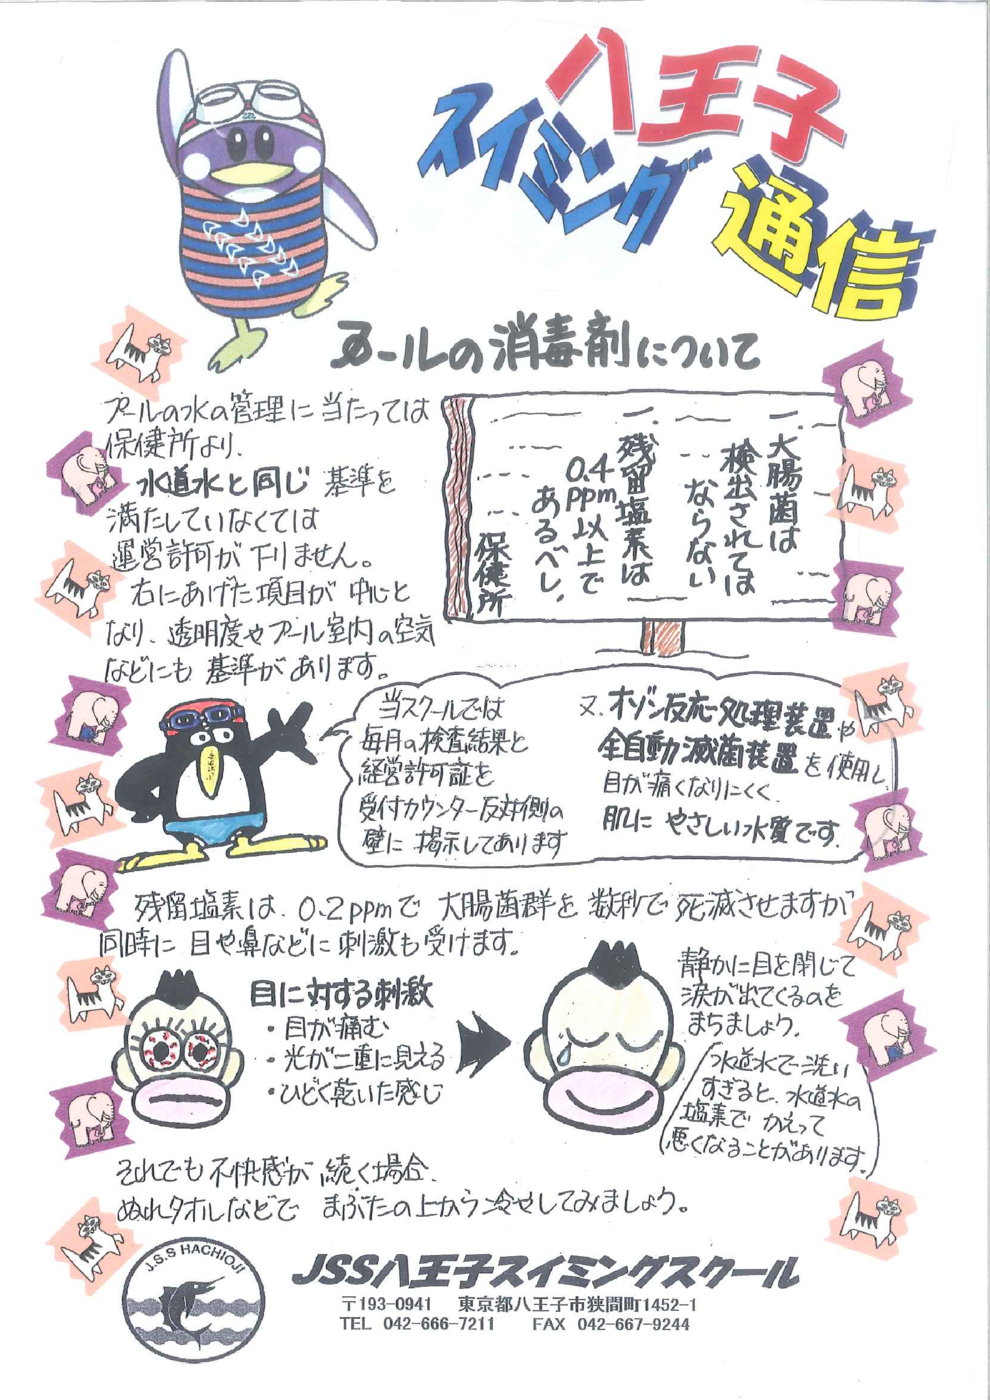 八王子
スイミング
通信
プールの消毒剤について
プールの水の管理に当たっては
保健所より、
水道水と同じ基準を
満たしていなくては
運営許可が下りません。
右にあげた項目が中心と
なり、透明度やプール室内の空気
などにも基準があります。
一、大腸菌は
検出されては
ならない
一、残留塩素は
0.4ppm以上で
あるべし。
保健所
当スクールでは
毎月の検査結果と
経営許可証を
受付カウンター反対側の
壁に掲示してあります
又、オゾン反応処理装置や
全自動滅菌装置を使用し
目が痛くなりにくく
肌にやさしい水質です。
残留塩素は、0.2ppmで大腸菌群を数秒で死滅させますが
同時に目や鼻などに刺激も受けます。
目に対する刺激
・目が痛む
・光が二重に見える
・ひどく乾いた感じ
静かに目を閉じて
涙が出てくるのを
まちましょう。
(水道水で洗い
すぎると、水道水の
塩素でかえって
悪くなることがあります。)
それでも不快感が続く場合、
ぬれタオルなどでまぶたの上から冷やしてみましょう。
J.S.S HACHIOJI
JSS八王子スイミングスクール
〒193-0941 東京都八王子市狭間町1452-1
TEL 042-666-7211 FAX 042-667-9244